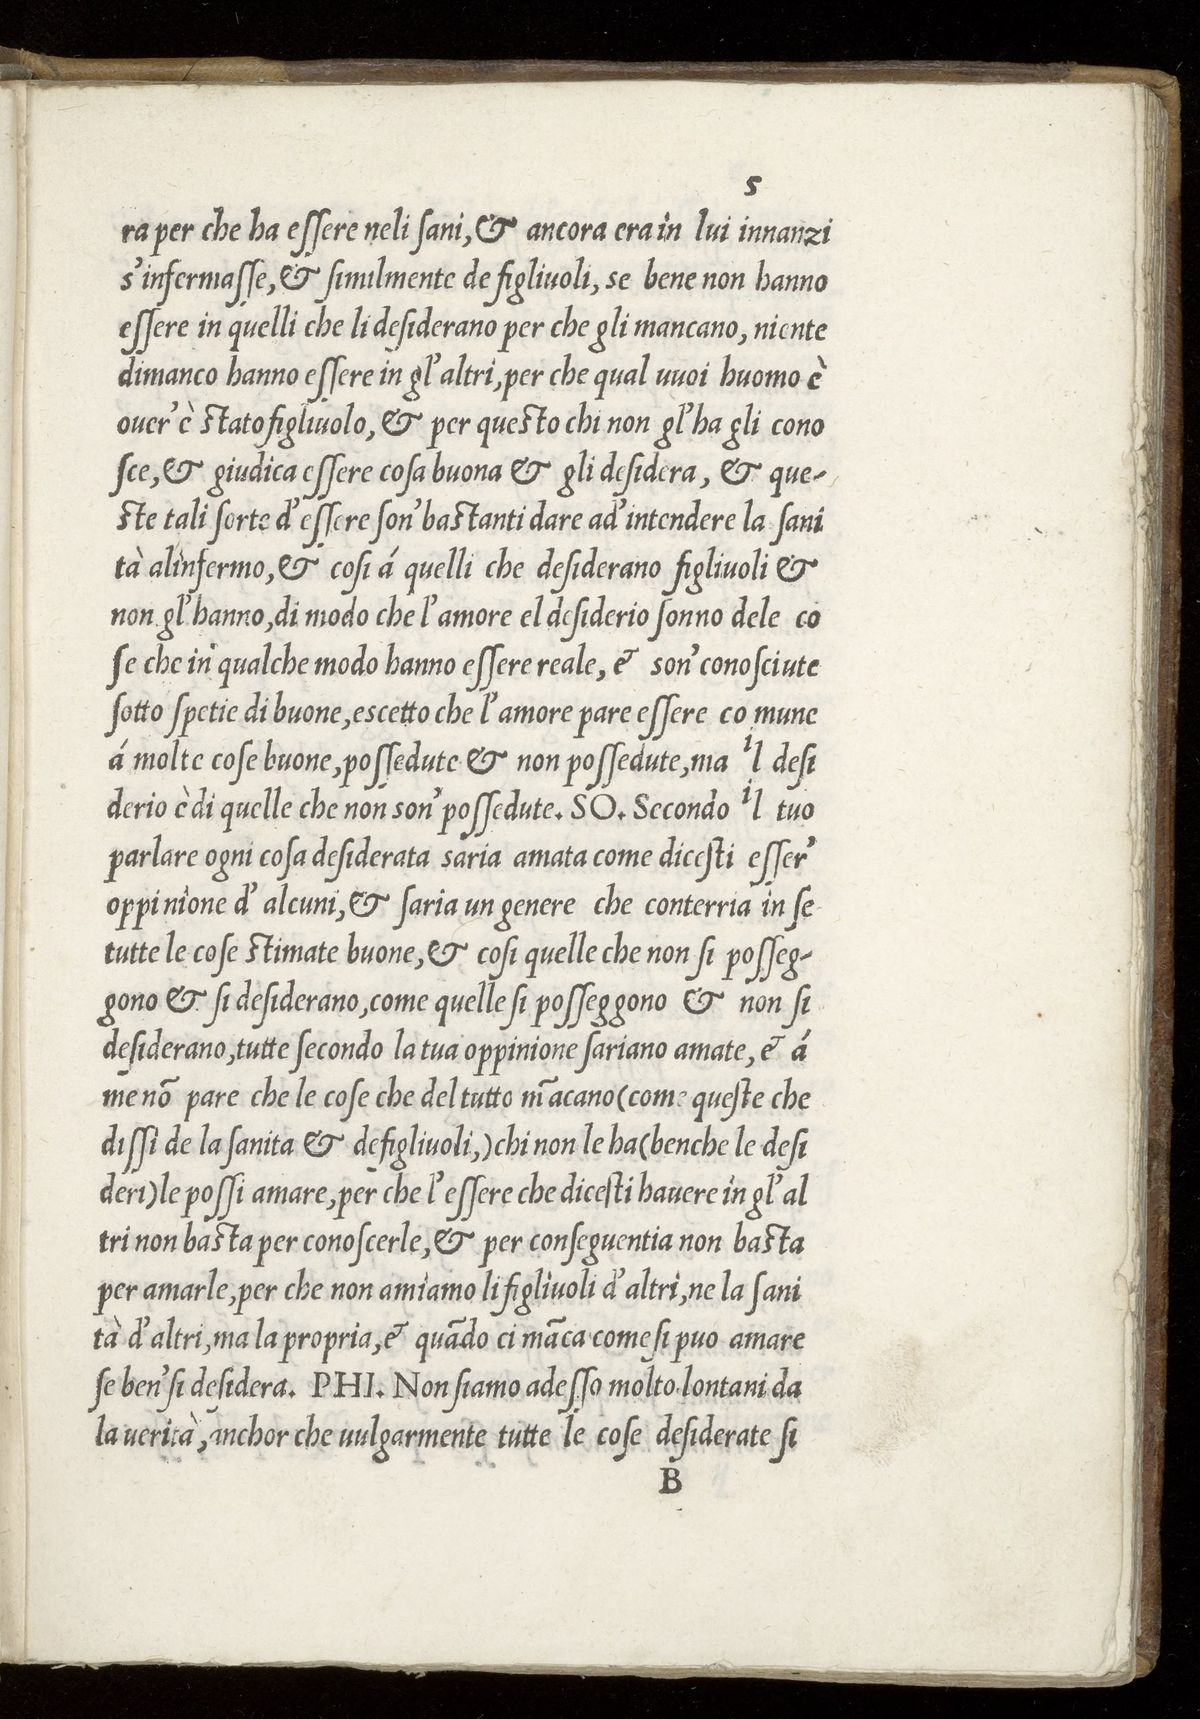 5
ra per che ha eſſere neli ſani, & ancora era in lui innanzi
s'infermaſſe, & ſimilmente de figliuoli, se bene non hanno
eſſere in quelli che li deſiderano per che gli mancano, niente
dimanco hanno eſſere in gl'altri, per che qual uuoi huomo è
ouer'è ſtato figliuolo, & per queſto chi non gl'ha gli cono
ſce, & giudica eſſere coſa buona & gli deſidera, & que-
ſte tali ſorte d'eſſere ſon'baſtanti dare ad'intendere la ſani
tà alinfermo, & coſi á quelli che deſiderano figliuoli &
non gl'hanno, di modo che l'amore el deſiderio ſonno dele co
ſe che in qualche modo hanno eſſere reale, & son'conoſciute
ſotto ſpetie di buone, escetto che l'amore pare eſſere co mune
á molte coſe buone, poſſedute & non poſſedute, ma il deſi
derio è di quelle che non son'poſſedute. SO. Secondo il tuo
parlare ogni coſa deſiderata saria amata come diceſti eſſer'
oppinione d'alcuni, & ſaria un genere che conterria in ſe
tutte le coſe ſtimate buone, & coſi quelle che non ſi poſſeg-
gono & ſi deſiderano, come quelle ſi poſſeggono & non ſi
deſiderano, tutte ſecondo la tua oppinione ſariano amate, & á
me nõ pare che le coſe che del tutto m̃acano (come queſte che
diſſi de la ſanita & de figliuoli,) chi non le ha (benche le deſi
deri) le poſſi amare, per che l'eſſere che diceſti hauere in gl'al
tri non baſta per conoſcerle, & per conſeguentia non baſta
per amarle, per che non amiamo li figliuoli d'altri, ne la ſani
tà d'altri, ma la propria, & quãdo ci mãca come ſi puo amare
ſe ben'ſi deſidera. PHI. Non ſiamo adeſſo molto lontani da
la uerità, anchor che uulgarmente tutte le coſe deſiderate ſi
B